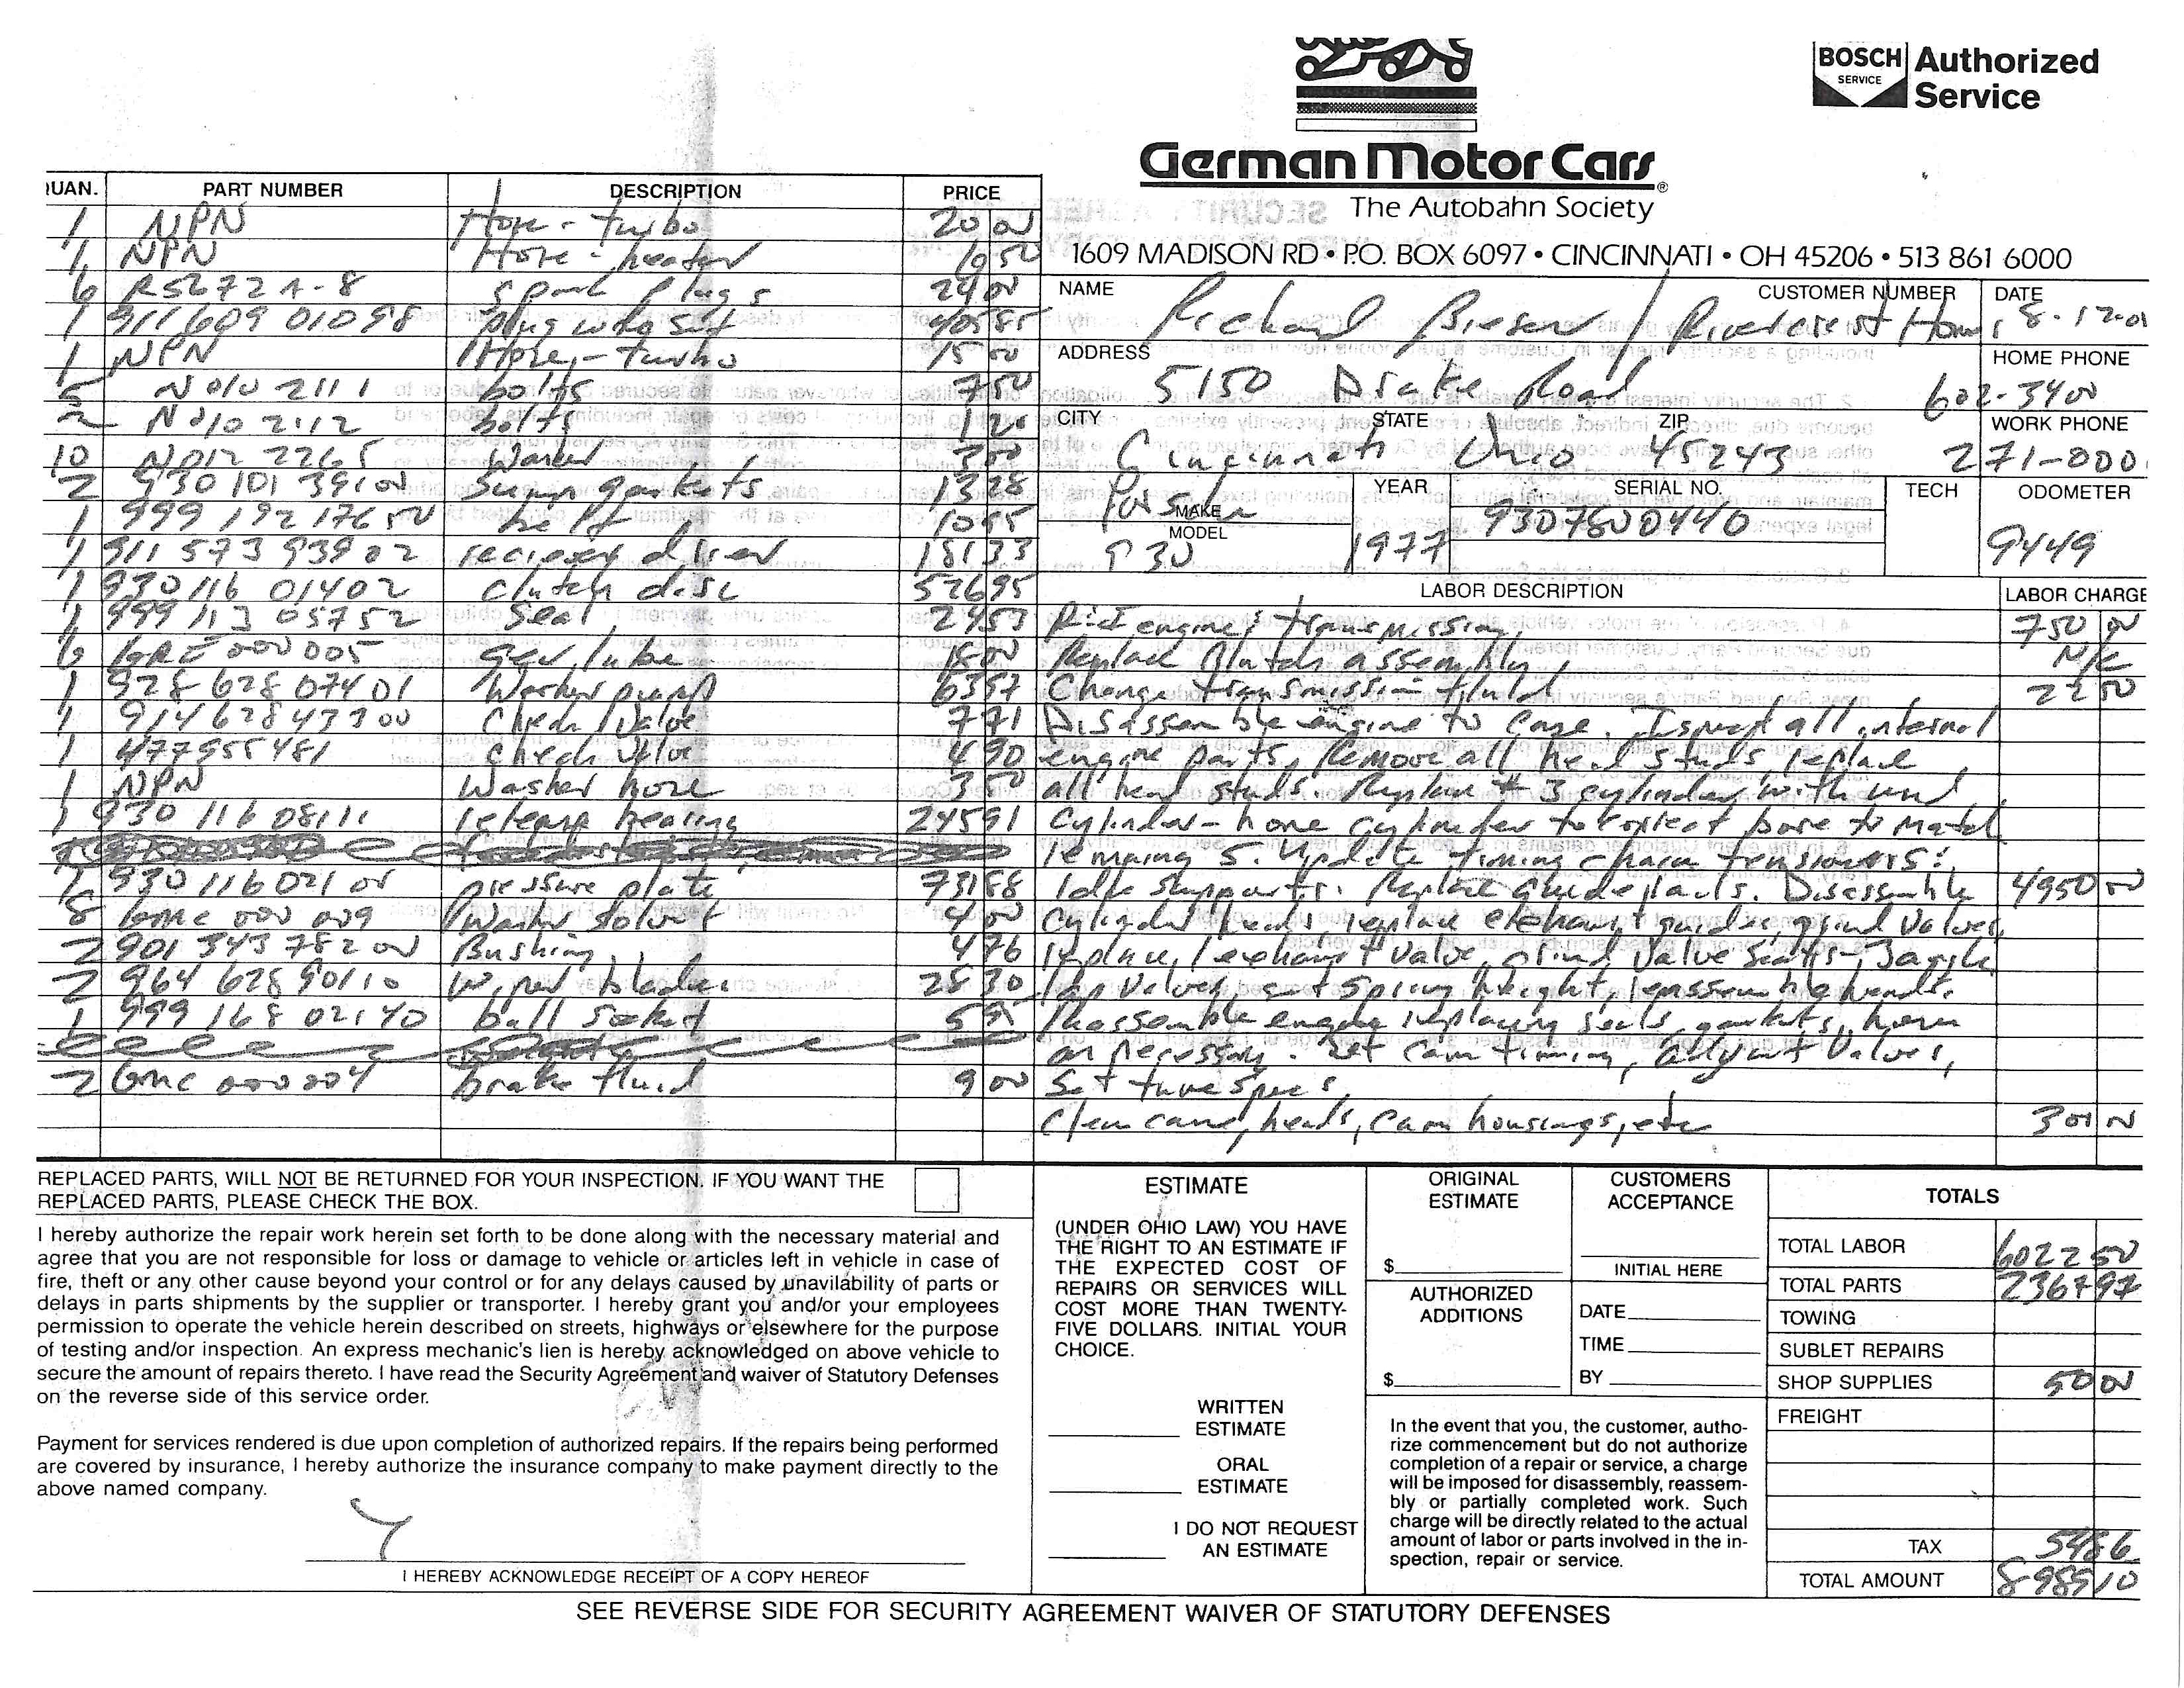 BOSCH SERVICE Authorized Service
German Motor Cars ®
The Autobahn Society
1609 MADISON RD • P.O. BOX 6097 • CINCINNATI • OH 45206 • 513 861 6000
UAN. PART NUMBER DESCRIPTION PRICE
1 NPN Hose - turbo 20 00
1 NPN Hose - heater 10 50
6 RS272A-8 spark plugs 24 00
1 911 609 010 98 plug wire set 405 85
1 NPN Hose - turbo 15 00
5 N 010 211 1 bolts 7 50
2 N 010 211 2 bolts 1 20
10 N 012 226 5 3 00
2 930 101 391 00 Sump gaskets 13 28
1 999 192 176 50 belt 10 95
1 911 573 939 02 drier 181 33
1 930 116 014 02 clutch disc 526 95
1 999 113 057 52 Seal 24 53
6 000 005 gear lube 18 00
1 928 628 074 01 Washer pump 63 57
1 914 628 433 00 Check Valve 7 71
1 477955481 Check Valve 4 90
1 NPN Washer hose 3 50
1 930 116 081 11 release bearing 245 91
1 930 116 021 05 pressure plate 731 88
8 GMC 000 009 Washer solvent 4 00
2 901 343 782 00 Bushing 4 76
2 964 628 901 10 Wiper blades 28 30
1 999 168 021 40 ball socket 5 95
2 GMC 000 004 brake fluid 9 00
NAME CUSTOMER NUMBER DATE
Richard Bieser / Rivercrest Homes 8-17-01
ADDRESS HOME PHONE
5150 Drake Road 602-3400
CITY STATE ZIP WORK PHONE
Cincinnati Ohio 45243 271-000
MAKE YEAR SERIAL NO. TECH ODOMETER
Porsche
MODEL
930 1977 9307800440 9449
LABOR DESCRIPTION LABOR CHARGE
R&I engine & transmission, 750 00
Replace Clutch assembly, N/C
Change transmission fluid 22 50
Disassemble engine to case. Inspect all internal
engine parts, Remove all head studs, replace
all head studs. Replace #3 cylinder with used
cylinder - hone cylinder to correct bore to match
remaing 5. Update timing chain tensioners &
Idle supports. Replace guide rails. Disassemble 4950 00
cylinder heads, replace exhaust guides, grind Valves,
replace 1 exhaust Valve, grind Valve Seats -
lap Valves, set spring height, reassemble heads.
Reassemble engine replacing seals, gaskets, hoses
as necessary. Set cam timing, adjust Valves,
Set tune specs
Clean case, heads, cam housings, etc 300 00
REPLACED PARTS, WILL NOT BE RETURNED FOR YOUR INSPECTION. IF YOU WANT THE
REPLACED PARTS, PLEASE CHECK THE BOX.
I hereby authorize the repair work herein set forth to be done along with the necessary material and
agree that you are not responsible for loss or damage to vehicle or articles left in vehicle in case of
fire, theft or any other cause beyond your control or for any delays caused by unavilability of parts or
delays in parts shipments by the supplier or transporter. I hereby grant you and/or your employees
permission to operate the vehicle herein described on streets, highways or elsewhere for the purpose
of testing and/or inspection. An express mechanic's lien is hereby acknowledged on above vehicle to
secure the amount of repairs thereto. I have read the Security Agreement and waiver of Statutory Defenses
on the reverse side of this service order.
Payment for services rendered is due upon completion of authorized repairs. If the repairs being performed
are covered by insurance, I hereby authorize the insurance company to make payment directly to the
above named company.
I HEREBY ACKNOWLEDGE RECEIPT OF A COPY HEREOF
ESTIMATE
(UNDER OHIO LAW) YOU HAVE
THE RIGHT TO AN ESTIMATE IF
THE EXPECTED COST OF
REPAIRS OR SERVICES WILL
COST MORE THAN TWENTY-
FIVE DOLLARS. INITIAL YOUR
CHOICE.
WRITTEN
ESTIMATE
ORAL
ESTIMATE
I DO NOT REQUEST
AN ESTIMATE
ORIGINAL
ESTIMATE
$
AUTHORIZED
ADDITIONS
$
CUSTOMERS
ACCEPTANCE
INITIAL HERE
DATE
TIME
BY
In the event that you, the customer, autho-
rize commencement but do not authorize
completion of a repair or service, a charge
will be imposed for disassembly, reassem-
bly or partially completed work. Such
charge will be directly related to the actual
amount of labor or parts involved in the in-
spection, repair or service.
TOTALS
TOTAL LABOR 6022 50
TOTAL PARTS 2367 97
TOWING
SUBLET REPAIRS
SHOP SUPPLIES 50 00
FREIGHT
TAX 548 6
TOTAL AMOUNT 8989 10
SEE REVERSE SIDE FOR SECURITY AGREEMENT WAIVER OF STATUTORY DEFENSES